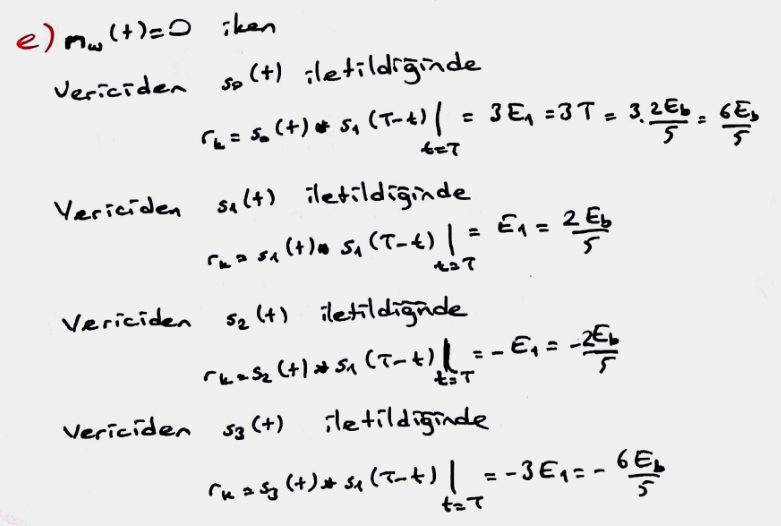 e) m_w(t)=0 iken
Vericiden s_0(t) iletildiğinde
r_k = s_0(t) * s_1(T-t) |_{t=T} = 3E_1 = 3T = 3.2E_b/5 = 6E_b/5
Vericiden s_1(t) iletildiğinde
r_k = s_1(t) * s_1(T-t) |_{t=T} = E_1 = 2E_b/5
Vericiden s_2(t) iletildiğinde
r_k = s_2(t) * s_1(T-t) |_{t=T} = -E_1 = -2E_b/5
Vericiden s_3(t) iletildiğinde
r_k = s_3(t) * s_1(T-t) |_{t=T} = -3E_1 = - 6E_b/5